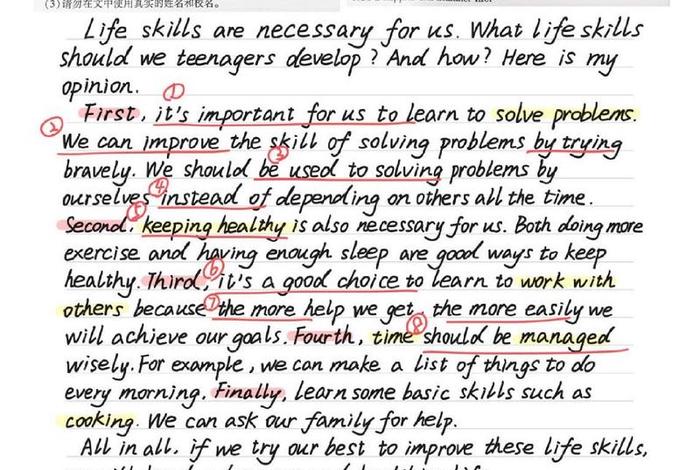 (3)请勿在文中使用真实的姓名和校名。
Life skills are necessary for us. What life skills
should we teenagers develop? And how? Here is my
opinion.
①
First, it's important for us to learn to solve problems.
② We can improve the skill of solving problems by trying
③
bravely. We should be used to solving problems by
ourselves ④ instead of depending on others all the time.
Second, ⑤ keeping healthy is also necessary for us. Both doing more
exercise and having enough sleep are good ways to keep
healthy. Third, ⑥ it's a good choice to learn to work with
others because ⑦ the more help we get, the more easily we
will achieve our goals. Fourth, time ⑧ should be managed
wisely. For example, we can make a list of things to do
every morning. Finally, learn some basic skills such as
cooking. We can ask our family for help.
All in all, if we try our best to improve these life skills,